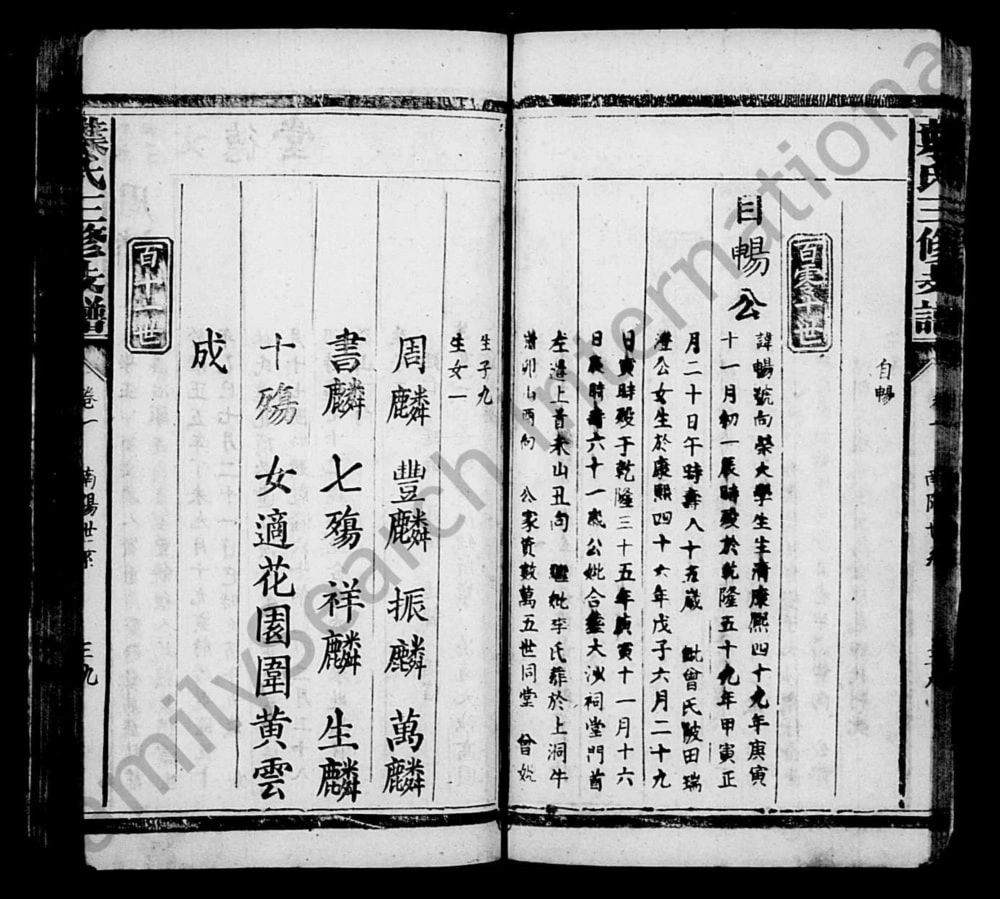 葉氏三修支譜
百零十世
自暢
自暢公
諱暢號向榮大學生生清康熙四十九年庚寅
十一月初一辰時歿於乾隆五十九年甲寅正
月二十日午時壽八十五歲 妣曾氏陂田瑞
灃公女生於康熙四十六年戊子六月二十九
日寅時歿于乾隆三十五年庚寅十一月十六
日辰時壽六十一歲公妣合葬大沙祠堂門首
左邊上首來山丑向 繼妣李氏葬於上洞牛
卯山酉向 公家資數萬五世同堂 曾妣
生子九
生女一
周麟 豐麟 振麟 萬麟
書麟 七殤 祥麟 生麟
十殤 女適花園圍黄雲
成
百十一世
葉氏三修支譜
卷一
南陽世系
三九
FamilySearch International